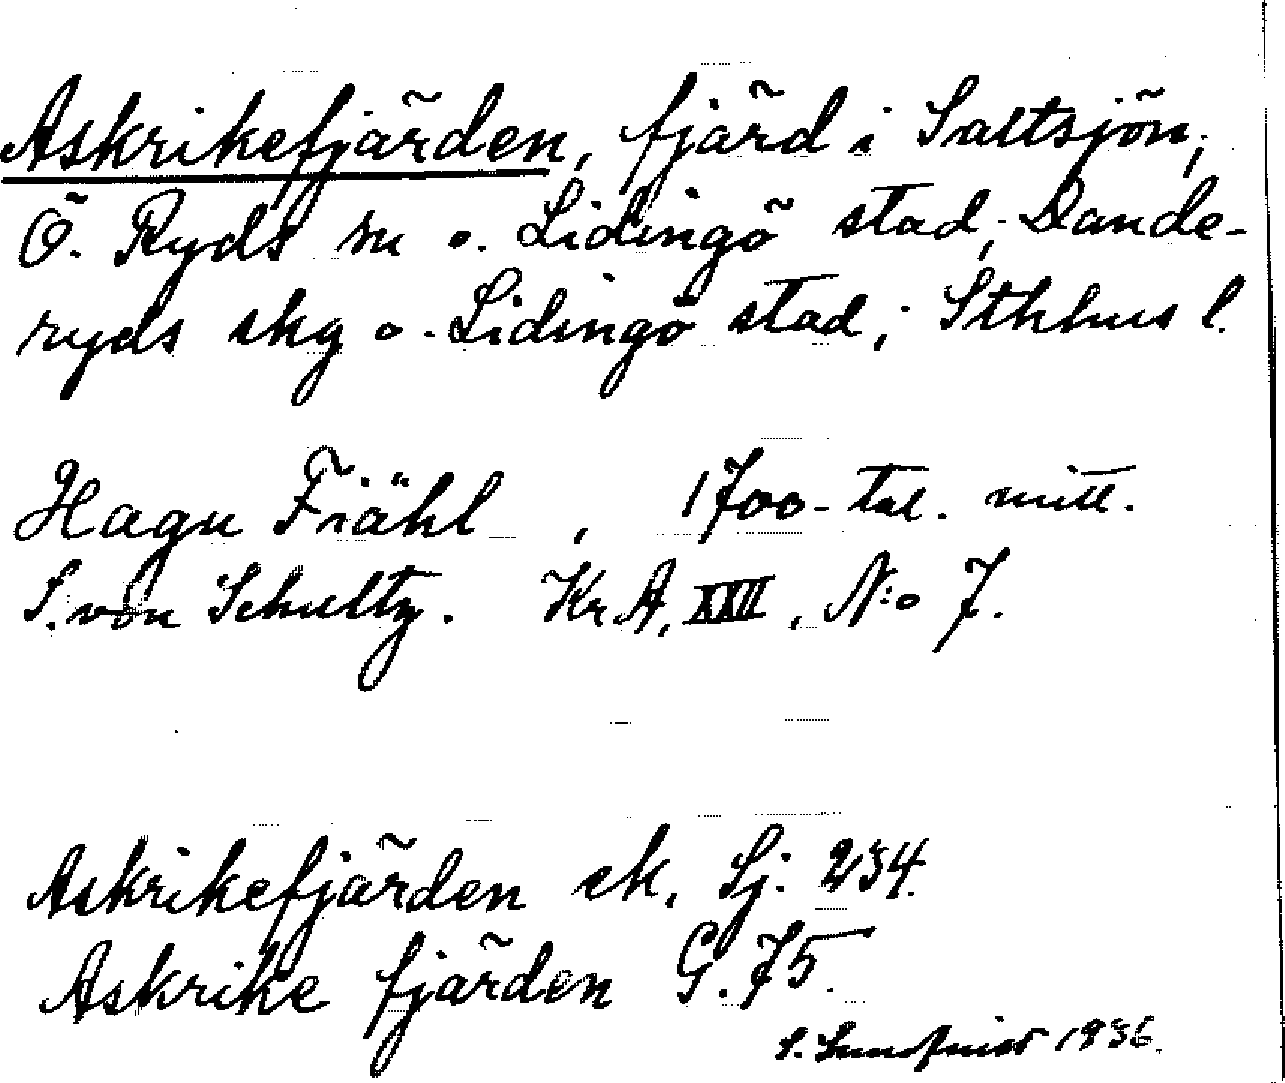 Askrikefjärden, fjärd i Saltsjön;
Ö. Ryds sn o. Lidingö stad; Dande-
ryds skg o. Lidingö stad; Sthlms l.
Hagu Frähl, 1700-tal. mitt.
S. von Schultz. Kr A, XXII, N:o 7.
Askrikefjärden ek, Sj. 234.
Askrike fjärden G. 75.
S. 1936.